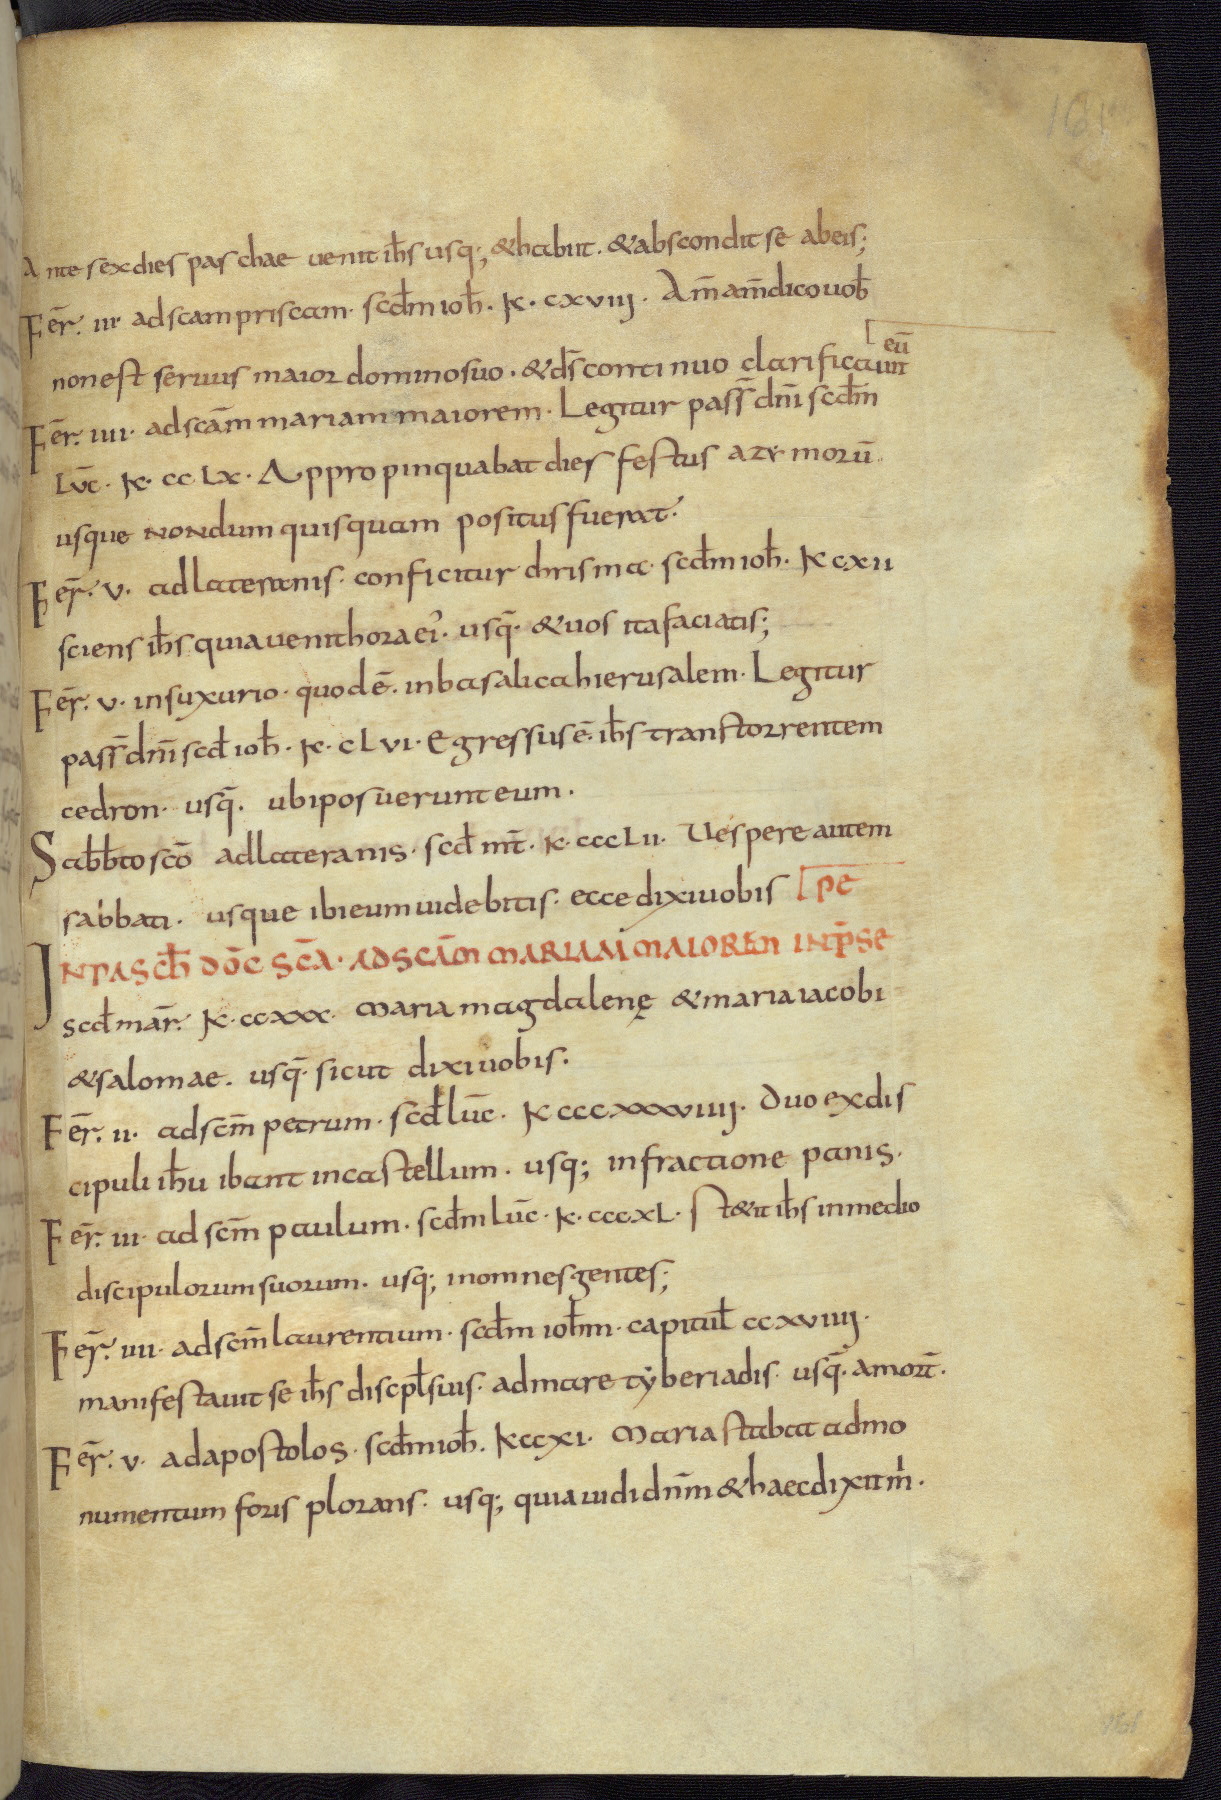 161
Ante sexdies paschae uenit ih̄s usq·; & habiit. & abscondit se abeis;
Fer̄. iii· adscam priscam· scd̄m ioh̄. K· cxviii· Am̄ am̄ dico uob̄
non est seruus maior domino suo. & d̄s continuo clarificauit eū
Fer̄. iiii· ad scām mariam maiorem· Legitur pass̄ dn̄i scd̄m
Lūc· K· cc Lx· Appropinquabat dies festus azymorū
usque nondum quisquam positus fuerat·
Fer̄. v· ad lateranis· conficitur chrisma· scd̄m ioh̄. K cxii
sciens ih̄s quia uenit hora ei᾽· usq̄· & uos ita faciatis;
Fer̄. v· insuxurio· quod ē· in basalica hierusalem· Legitur
pass̄ dn̄i scd̄ ioh̄· K· cLvi· Egressus ē· ih̄s trans torrentem
cedron· usq̄· ubi posuerunt eum·
Sabb̄to scō ad lateranis· scd̄ mt̄· K· cccLii· Uespere autem
sabbati· usque ibi eum uidebitis· ecce dixi uobis
IN PASCH̄ DŌC SCĀ· AD SCĀM MARIAM MAIOREM IN P̄SEPĒ
scd̄ mār· K· ccxxx· Maria magdalenę & maria iacobi
& salomae. usq̄· sicut dixi uobis·
Fer̄. ii· ad scm̄ petrum· scd̄ lūc· K cccxxxviiii· Duo ex dis
cipuli ih̄u ibant in castellum· usq·; in fractione panis·
Fer̄. iii· ad scm̄ paulum· scd̄m lūc· K· cccxL· st&it ih̄s in medio
discipulorum suorum· usq·; in omnes gentes;
Fer̄. iiii· ad scm̄ laurentium· scd̄m ioh̄m· capitul̄ ccxviiii·
manifestauit se ih̄s discipl̄ suis· ad mare tyberiadis· usq̄· a mort̄·
Fer̄. v· ad apostolos· scd̄m ioh̄. K ccxi· Maria stabat ad mo
numentum foris plorans· usq·; quia uidi dn̄m & haec dixit m̄·